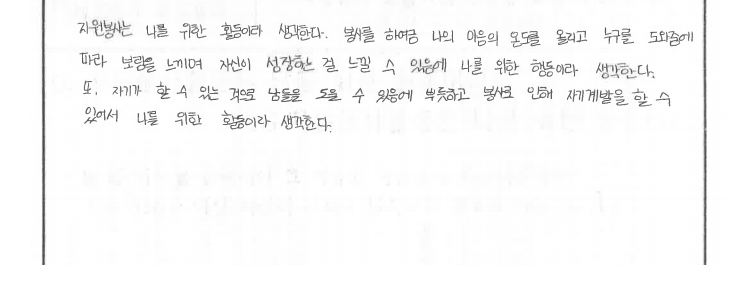 자원봉사는 나를 위한 활동이라 생각한다. 봉사를 하여금 나의 마음의 온도를 올리고 누구를 도와줌에
따라 보람을 느끼며 자신이 성장하는 걸 느낄 수 있음에 나를 위한 행동이라 생각한다.
또, 자기가 할 수 있는 것으로 남들을 도울 수 있음에 뿌듯하고 봉사로 인해 자기계발을 할 수
있어서 나를 위한 활동이라 생각한다.